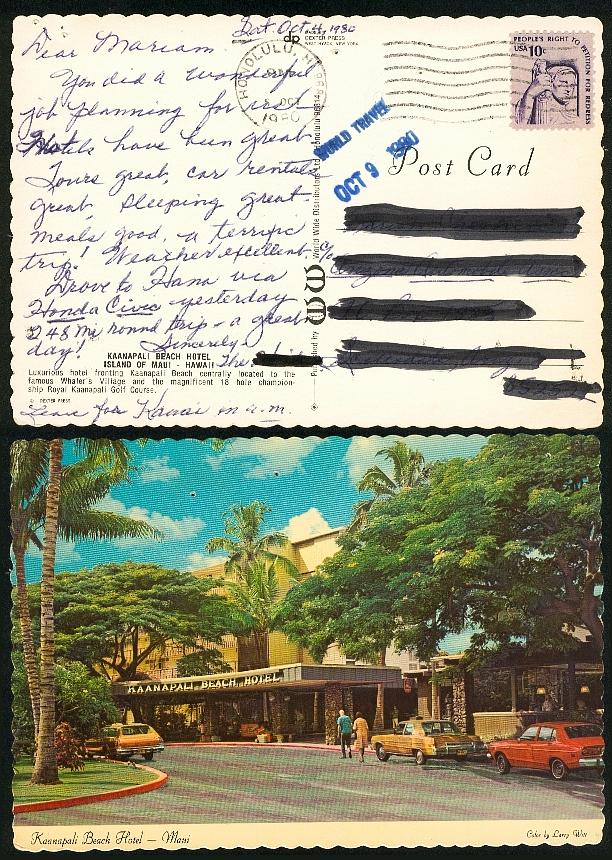 Sat. Oct 4, 1980
Dear Mariam -
You did a wonderful
job planning for us!
Hotels have been great
Tours great, car rentals
great, sleeping great -
meals good, a terrific
trip! Weather excellent.
Drove to Hana via
Honda Civic yesterday
248 mi round trip - a great
day! Sincerely,
The
KAANAPALI BEACH HOTEL
ISLAND OF MAUI - HAWAII
Luxurious hotel fronting Kaanapali Beach centrally located to the
famous Whaler's Village and the magnificent 18 hole champion-
ship Royal Kaanapali Golf Course.
© DEXTER PRESS
Leave for Hawaii in a.m.
dp
DEXTER PRESS
WEST NYACK, NEW YORK
HONOLULU, HI
OCT
1980
Published by WW World Wide Distributors Ltd. Honolulu
WORLD TRAVEL
OCT 9 1980
PEOPLE'S RIGHT TO PETITION FOR REDRESS
USA 10c
Post Card
c/o
KAANAPALI BEACH HOTEL
Kaanapali Beach Hotel — Maui
Color by Larry Witt